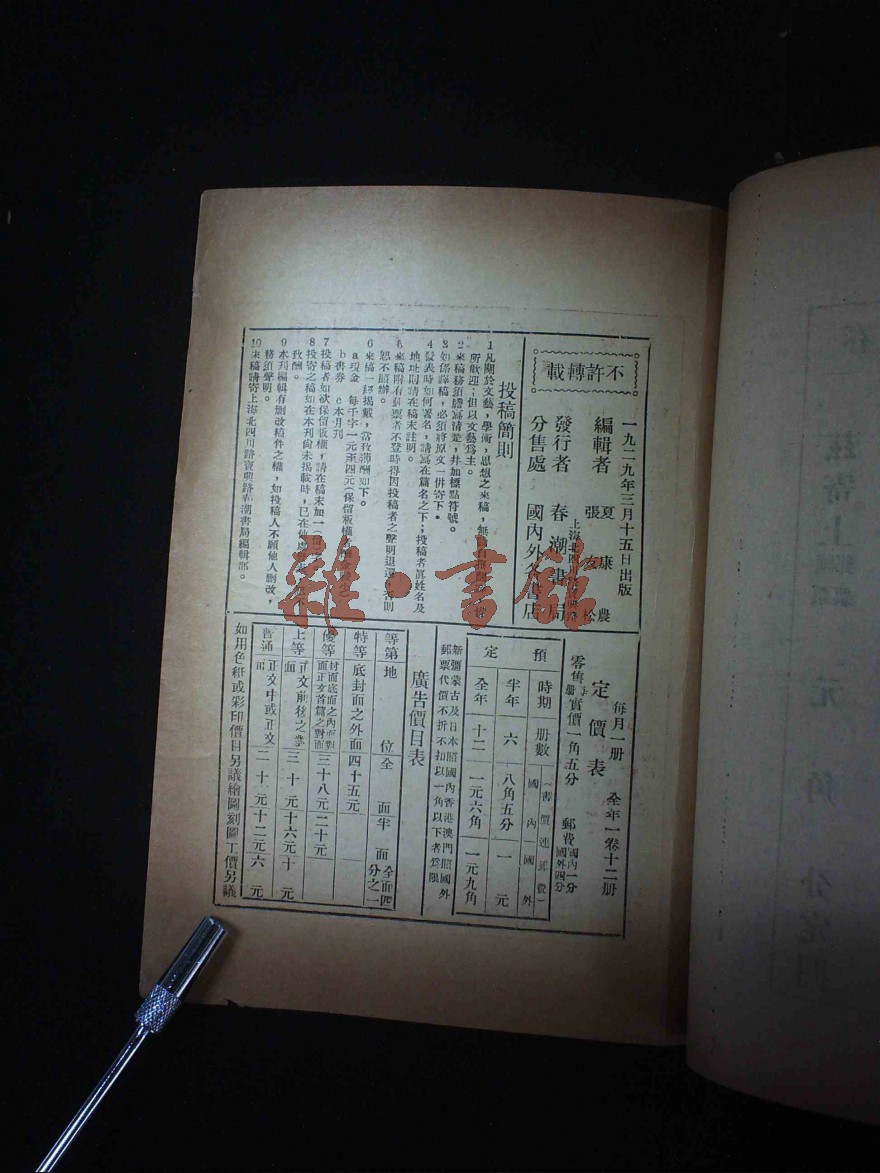 一九二九年三月十五日出版
不許轉載
編輯者 夏康農 張友松
發行者 春潮書局
上海北四川路
分售處 國內外各書店
投稿簡則
1 凡關於文藝,學術,思想之來稿,無
所歡迎;但以文藝爲主。
2 來稿務須謄寫清楚,幷加標點符號。
3 如係譯稿,必須將原文一併寄下。
4 發表時如何署名,請寫在篇名之下;投稿者眞姓名及
地址則請在稿末註明。
5 來稿附有郵票者不登時得因投稿者之聲明退還,否則
恕不照辦。
6 來稿一經揭載,當致薄酬如下。
a 現金 每千字一元至四元(保留版權
b 書券 c 本月刊
7 投稿者如欲保留版權,請在稿末加一
8 投寄之稿如在本刊尙未揭載時,已在他處
致酬。
9 本刊編輯有刪改稿件之權,如投稿人不願他人刪改,
務須聲明。
10 來稿請寄上海北四川路寶興路春潮書局編輯部。
每月一册 全年一卷十二册
定價表
零售每册實價一角五分 郵費國內一分國外四分
預定
時期 册數 (書價連郵費) 國內 國外
半年 六 八角五分 一元
全年 十二 一元六角 一元九角
新疆蒙古及日本照國內香港澳門照國外
郵票代價不折不扣以一角以下者爲限
廣告價目表
等第 地位 全面 半面 全面四分之一
特等 底封面之外面 四十五元
優等 封面底面之內面對面正文首篇之對面 三十八元 二十元
上等 正文前後之對面 三十元 十六元 十元
普通 正文中或正文 二十元 十二元 六元
如用色紙或彩印價目另議繪圖刻圖工價另議
雜·書館